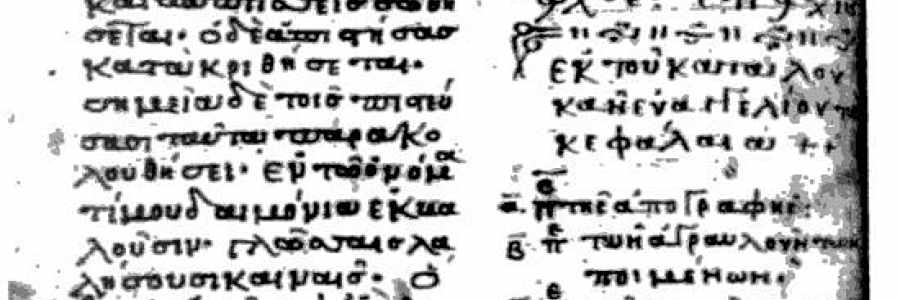 σεται· ὁ δὲ ἀπιστήσασ
κατακριθήσεται·
σημεῖα δὲ τοῖσ πιστεύ
σασι ταῦτα παρακο
λουθήσει· ἐν τῶ ὀνόμα
τί μου δαιμόνια ἐκβα
λοῦσιν· γλώσσαισ λα
λήσουσι καιναῖσ· ὄ
ἐκ τοῦ κατὰ λου
κᾶν εὐαγγελίου τὰ
κεφάλαια ++
α. πε τῆσ ἀπογραφῆσ·
β πε τῶν ἀγραυλούντων
ποιμένων·